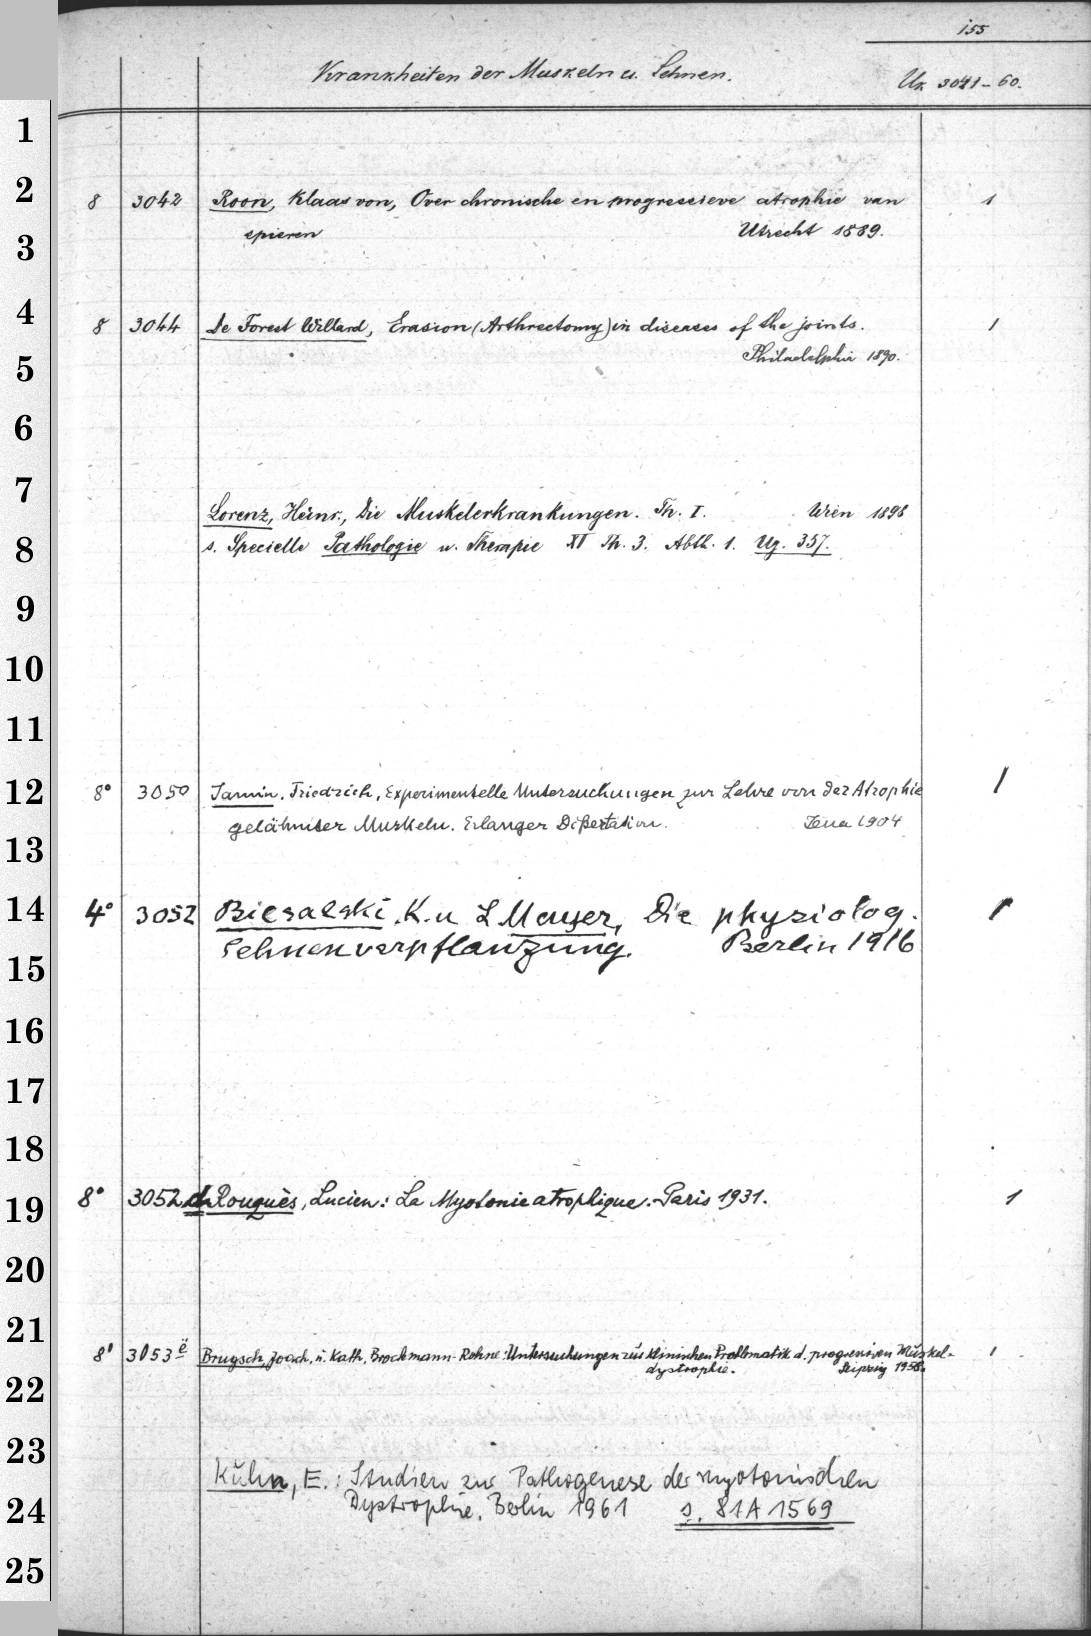 155
Krankheiten der Muskeln u. Sehnen.
Uz 3041-60.
1
2
3
4
5
6
7
8
9
10
11
12
13
14
15
16
17
18
19
20
21
22
23
24
25
8 3042 Roon, Klaas von, Over chronische en progressieve atrophie van 1
spieren Utrecht 1889.
8 3044 De Forest Willard, Erasion (Arthrectomy) in diseases of the joints. 1
Philadelphia 1890.
Lorenz, Heinr., Die Muskelerkrankungen. Th. I. Wien 1898
s. Specielle Pathologie u. Therapie XI Th. 3. Abth. 1. Ug. 357.
8° 3050 Jamin, Friedrich, Experimentelle Untersuchungen zur Lehre von der Atrophie 1
gelähmter Muskeln. Erlanger Dißertation. Jena 1904
4° 3052 Biesalski, K. u L Mayer, Die physiolog. 1
Sehnenverpflanzung. Berlin 1916
8° 3052 d Rouquès, Lucien: La Myotonie atrophique. - Paris 1931. 1
8° 3053 ë Brugsch, Joach. u. Kath. Brockmann-Rohne: Untersuchungen zur klinischen Problematik d. progressiven Muskel- 1
dystrophie. Leipzig 1958.
Kuhn, E.: Studien zur Pathogenese der myotonischen
Dystrophie. Berlin 1961 s. 81 A 1569